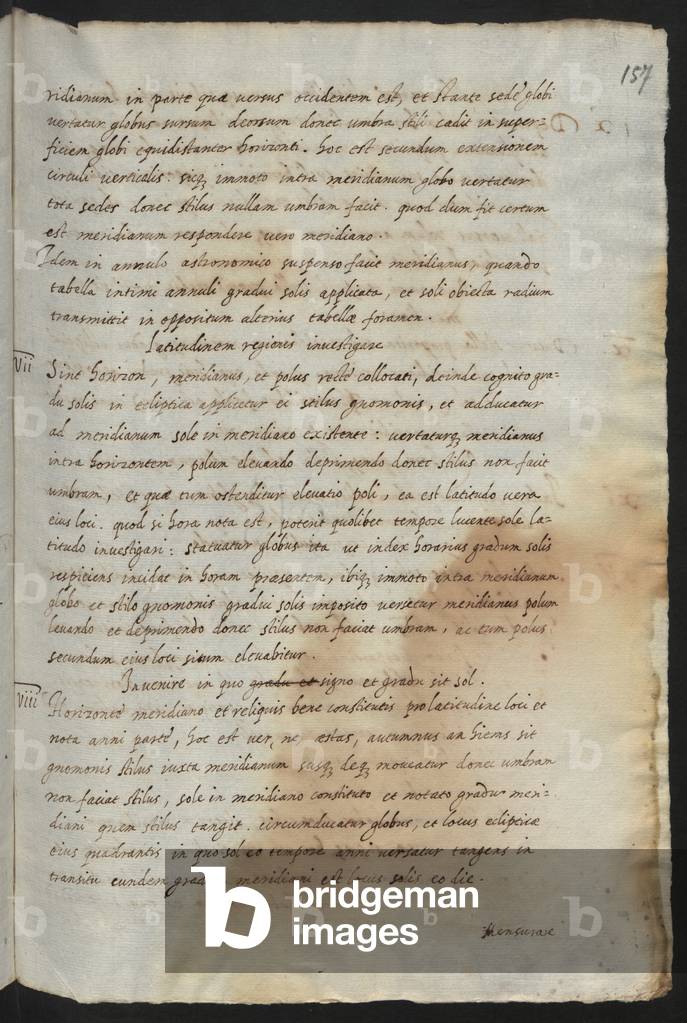 157
ridianum in parte quæ versus occidentem est, et stante sede globi
vertatur globus sursum deorsum donec umbra stili cadit in super=
ficiem globi equidistanter horizonti. hoc est secundum extensionem
circuli verticalis: sicq; immoto intra meridianum globo vertatur
tota sedes donec stilus nullam umbram facit. quod dum fit certum
est meridianum respondere vero meridiano.
Idem in annulo astronomico suspenso facit meridianus, quando
tabella intimi annuli gradui solis applicata, et soli obiecta radium
transmittit in oppositum alterius tabellæ foramen.
Latitudinem regionis investigare
Vii
Sint horizon, meridianus, et polus recte collocati, deinde cognito gra=
du solis in ecliptica applicetur ei stilus gnomonis, et adducatur
ad meridianum sole in meridiano existente: vertaturq; meridianus
intra horizontem, polum elevando deprimendo donec stilus non facit
umbram, et quæ tum ostenditur elevatio poli, ea est latitudo vera
eius loci. quod si hora nota est, poterit quolibet tempore lucente sole la=
titudo investigari: statuatur globus ita ut index horarius gradum solis
respiciens incidat in horam præsentem, ibiq; immoto intra meridianum
globo et stilo gnomonis gradui solis imposito versetur meridianus polum
levando et deprimendo donec stilus non faciat umbram, ac tum polus
secundum eius loci situm elevabitur.
Invenire in quo gradu et signo et gradu sit sol.
Viii
Horizonte meridiano et reliquis bene constitutis pro latitudine loci et
nota anni parte, hoc est ver, ne, æstas, autumnus an hiems sit
gnomonis stilus iuxta meridianum susq; deq; moveatur donec umbram
non faciat stilus, sole in meridiano constituto et notato gradu meri=
diani quem stilus tangit. circumducatur globus, et locus eclipticæ
eius quadrantis in quo sol eo tempore anni versatur tangens in
transitu eundem meridiani est locus solis eo die.
Mensurare
b bridgeman
images